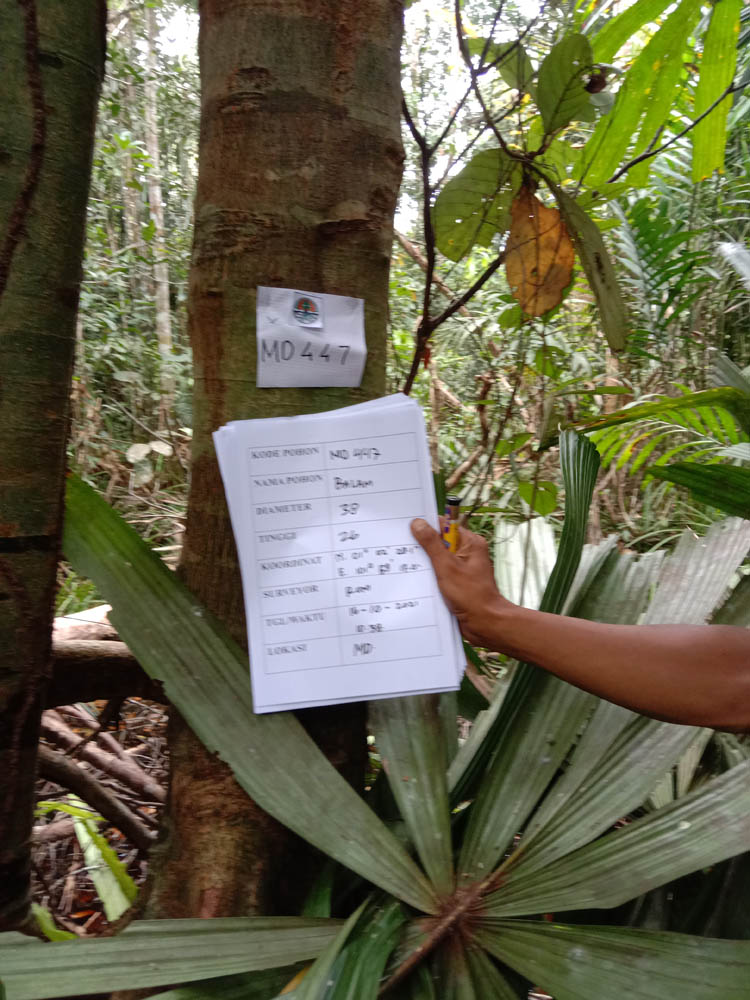 MD 447
KODE POHON MD 447
NAMA POHON BALAM
DIAMETER 38
TINGGI 26
KOORDINAT N. 01°
E. 101°
SURVEYOR
TGL/WAKTU 16-10-2021
LOKASI MD